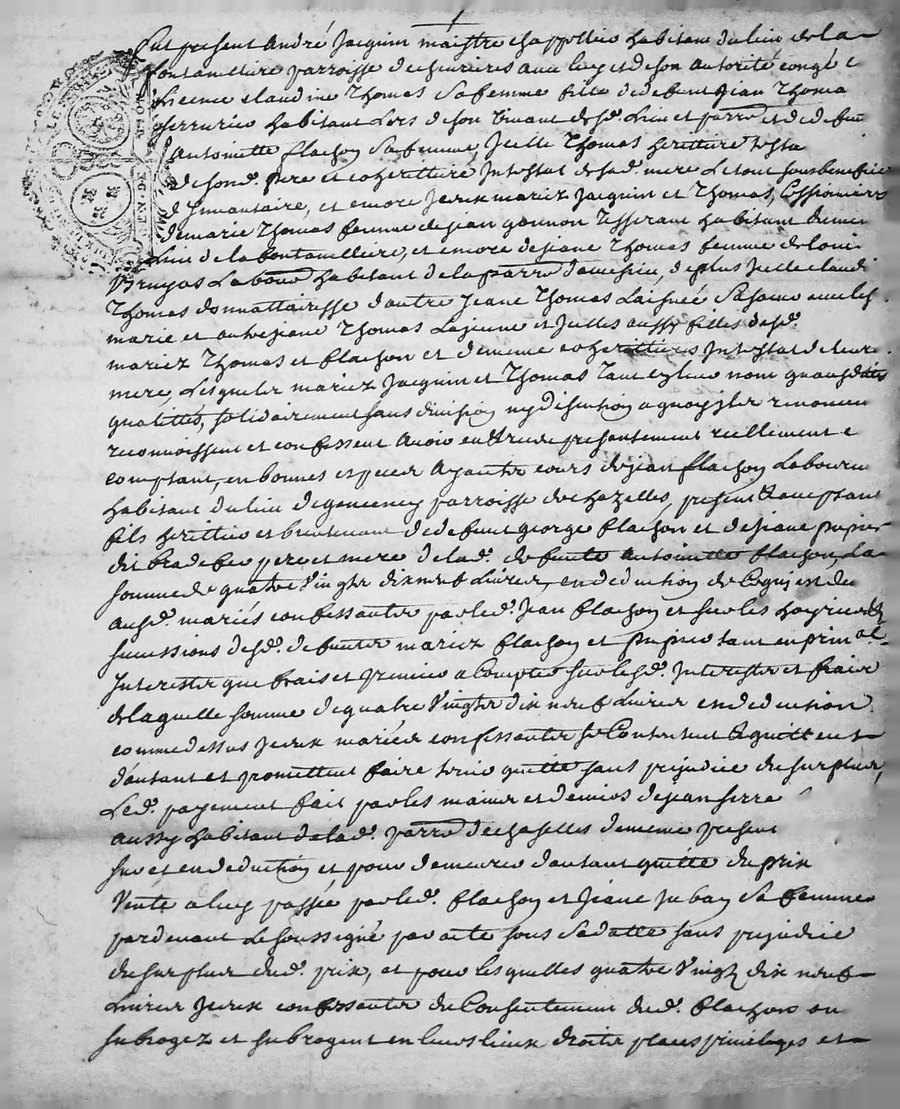 fut present André Jacquin maistre chappellier habitant du lieu de la
fontanelliere parroisse de chevrieres avec luy et de son autorité congé e
Licence claudine Thomas sa femme fille de defunt Jean Thoma
serrurier habitant Lors de son vivant desd. Lieu et parro et de defun
Antoinette flachon sa femme, Jcelle Thomas heritiere testa
de sond. pere et coheritiere Intestat de sad. mere Le tout sous benefice
d'Inventaire, et encore Jceux mariez Jacquin et Thomas, Cessionnaires
de marie Thomas femme de jean gonnon Tisserant habitant dumeme
Lieu de la fontanelliere, et encore de jeane Thomas femme de louis
Bruyas Laboureur habitant de la parro daveisieu, de plus Jcelle claudi
Thomas donnattairesse d'autre Jeane Thomas Laisnée sa soeur avec lesd.
marie et autre jeane Thomas Lajeune et Jcelles aussy filles desd.
mariez Thomas et flachon et de meme coheritieres Intestat de leur
mere, Lesquels mariez Jacquin et Thomas Tant en leur nom quausdites
qualittés, solidairement sans division ny discution a quoy Jls renoncent
reconnoissent et confessent Avoir eu et receu presentement reellement e
comptant, en bonnes especes Ayants cours de jean flachon Laboureur
habitant du lieu de genceney parroisse de chazelles, present et acceptant
fils heritier et bientenant de defunt george flachon et de jeane pupier
dit bradefer pere et mere de lad. defunte Antoinette flachon, La
somme de quatre Vingts dix neuf Livres, en deduction de Ce qui est du
ausd. mariés confessants par led. Jean flachon et sur les hoyries et
successions desd. defunts mariez flachon et pupier tant en prin al.
Interests que frais et premier a Compter sur lesd. Interests et frais
de laquelle somme de quatre Vingts dix neuf Livres en deduction
comme dessus Jceux mariés confessants se Contentent et quittent
d'autant et promettent faire tenir quitte sans prejudice du surplus,
Led. payement fait par les mains et deniers de jean serre
aussy habitant de lad. parro de chaselles de meme present
sur et en deduction et pour demeurer d'autant quitte du prix
Vente a luy passée par led. flachon et Jeane Juban sa femme
pardevant Le soussigné par acte sous sa datte sans prejudice
du surplus dud. prix, et pour lesquelles quatre Vingt dix neuf
Livres Jceux confessants du Consentement dud. flachon on
subrogez et subrogent en leurs lieux droits places privileges et